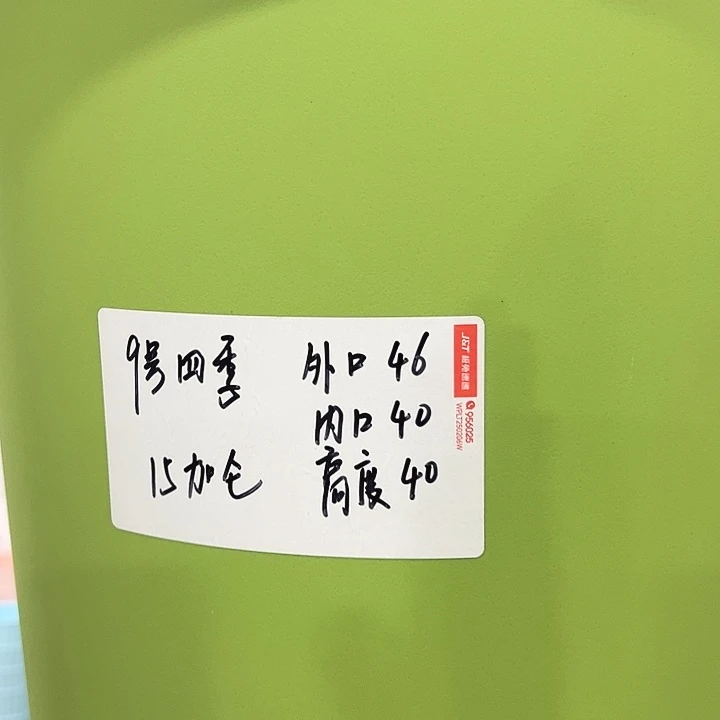 9号四季 外口 46
内口 40
15加仑 高度 40
J&T 極兔速遞
956025
WPLT250206W